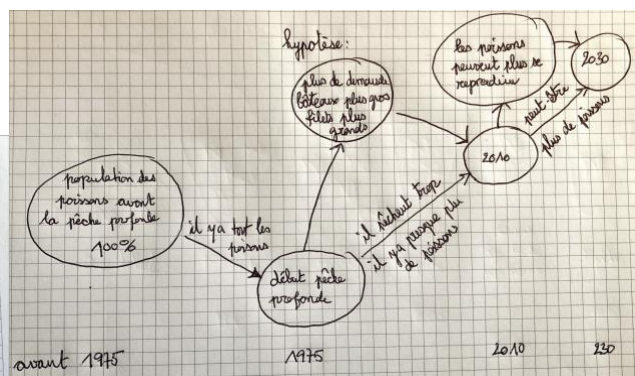 hypotèse:
plus de demande
bâteaux plus gros
filets plus
grands
les poissons
peuvent plus se
reproduire
2030
peut-être
plus de poissons
2010
population des
poissons avant
la pêche profonde
100%
il ya tout les
poissons
il pêchent trop
il ya presque plu
de poissons
début pêche
profonde
avant 1975
1975
2010
230